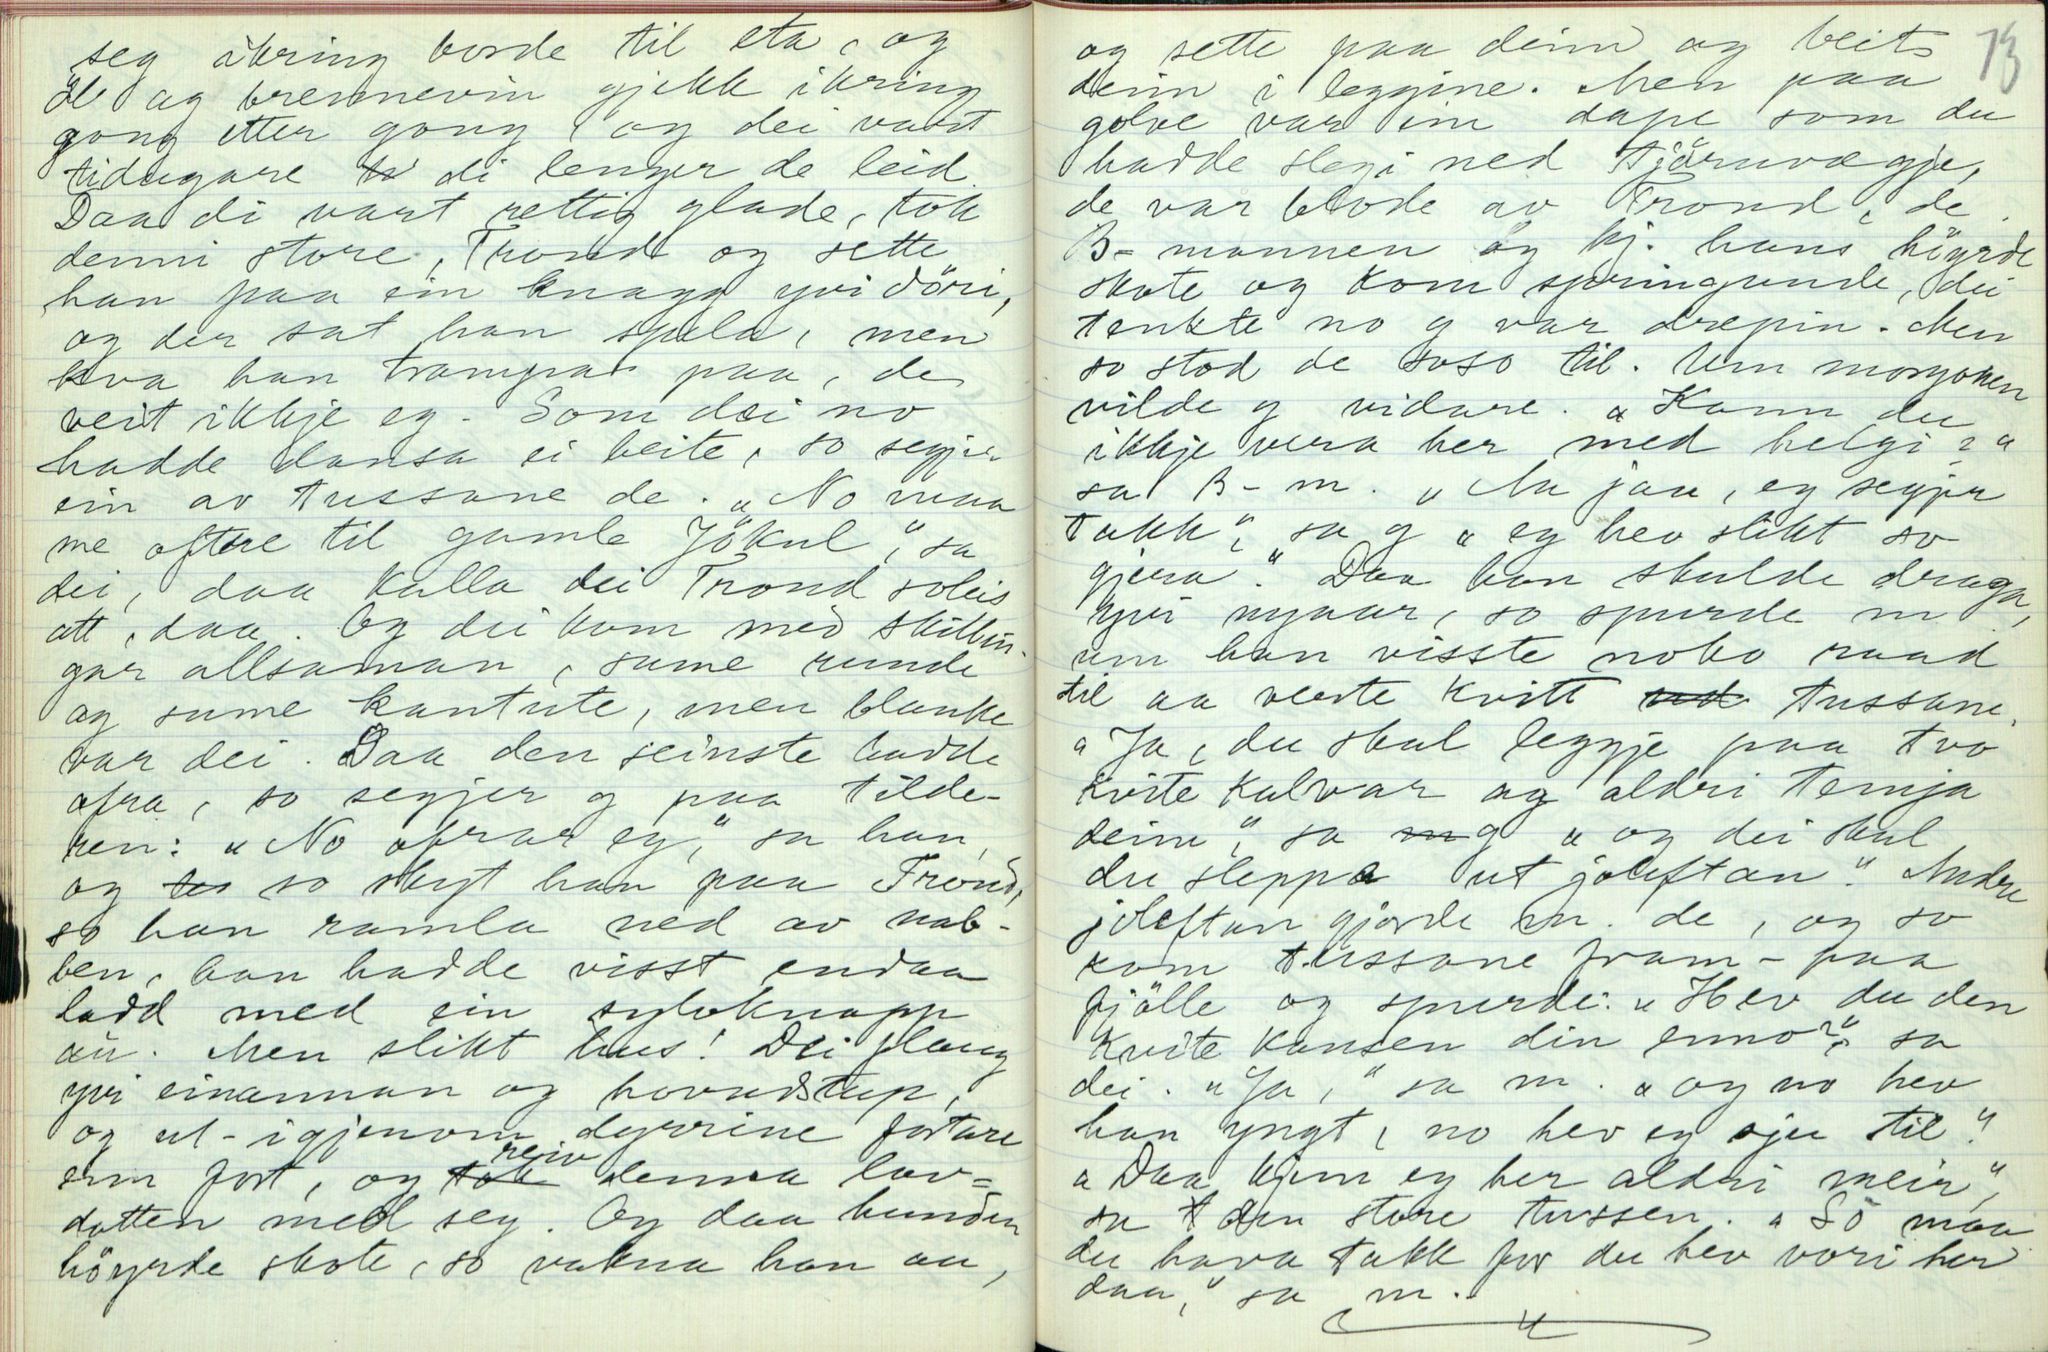 seg ikring borde til eta, og
öl og brennevin gjekk ikring
gong etter gong, og dei vart
tidugare di lenger de leid.
Daa di vart rettig glade, tok
denni store, Trond og sette
han paa ein knagg yvi döri,
og der sat han spela, men
kva han trampa paa, de
veit ikkje eg. Som dei no
hadde dansa ei beite, so segjer
ein av tussane de. „No maa
me oftre til gamle Jökul“, sa
dei, daa kalla dei Trond soleis
att, daa. Og dei kom med skillin-
gar allsaman, sume runde
og sume kantute, men blanke
var dei. Daa den seinste hadde
ofra, so segjer g paa tilde-
ren: „No ofrar eg,“ sa han,
og so skyt han paa Trond,
so han ramla ned av nab-
ben, han hadde visst endaa
ladd med ein sylvknapp
au. Men slikt hus! Dei flaug
yvi einannan og hovudstup,
og ut-igjenom dyrrine fortare
enn fort, og reiv denna lov-
datten med seg. Og daa hunden
höyrde skote, so vakna han au,
13
og sette paa deim og beit
deim i leggine. Men paa
golve var ein dape som du
hadde slegi ned tjöruvægje,
de var blode av Trond, de.
B-mannen og kj. hans höyrde
skote og kom springande, dei
tenkte no g var drepin. Men
so stod de soso til. Um morgonen
vilde g vidare. „Kann du
ikkje vera her med helgi?“
sa B-m. „Aa jau, eg segjer
takk“, sa g „eg hev slikt so
gjera“. Daa han skulde draga,
yvi nyaar, so spurde m
um han visste noko raad
til aa verte kvitt tussane.
„Ja, du skal leggje paa tvo
kvite kalvar og aldri temja
deim“, sa g „og dei skal
du sleppa ut joleftan“. Andre
joleftan gjorde m. de, og so
kom tussane fram-paa
fjölle og spurde: „Hev du den
kvite kansen din enno?“ sa
dei. „Ja,“ sa m. „og no hev
han yngt, no hev eg sju til“.
„Daa kjem eg her aldri meir“,
sa den store tussen. „So maa
du hava takk for du hev vori her
daa,“ sa m.